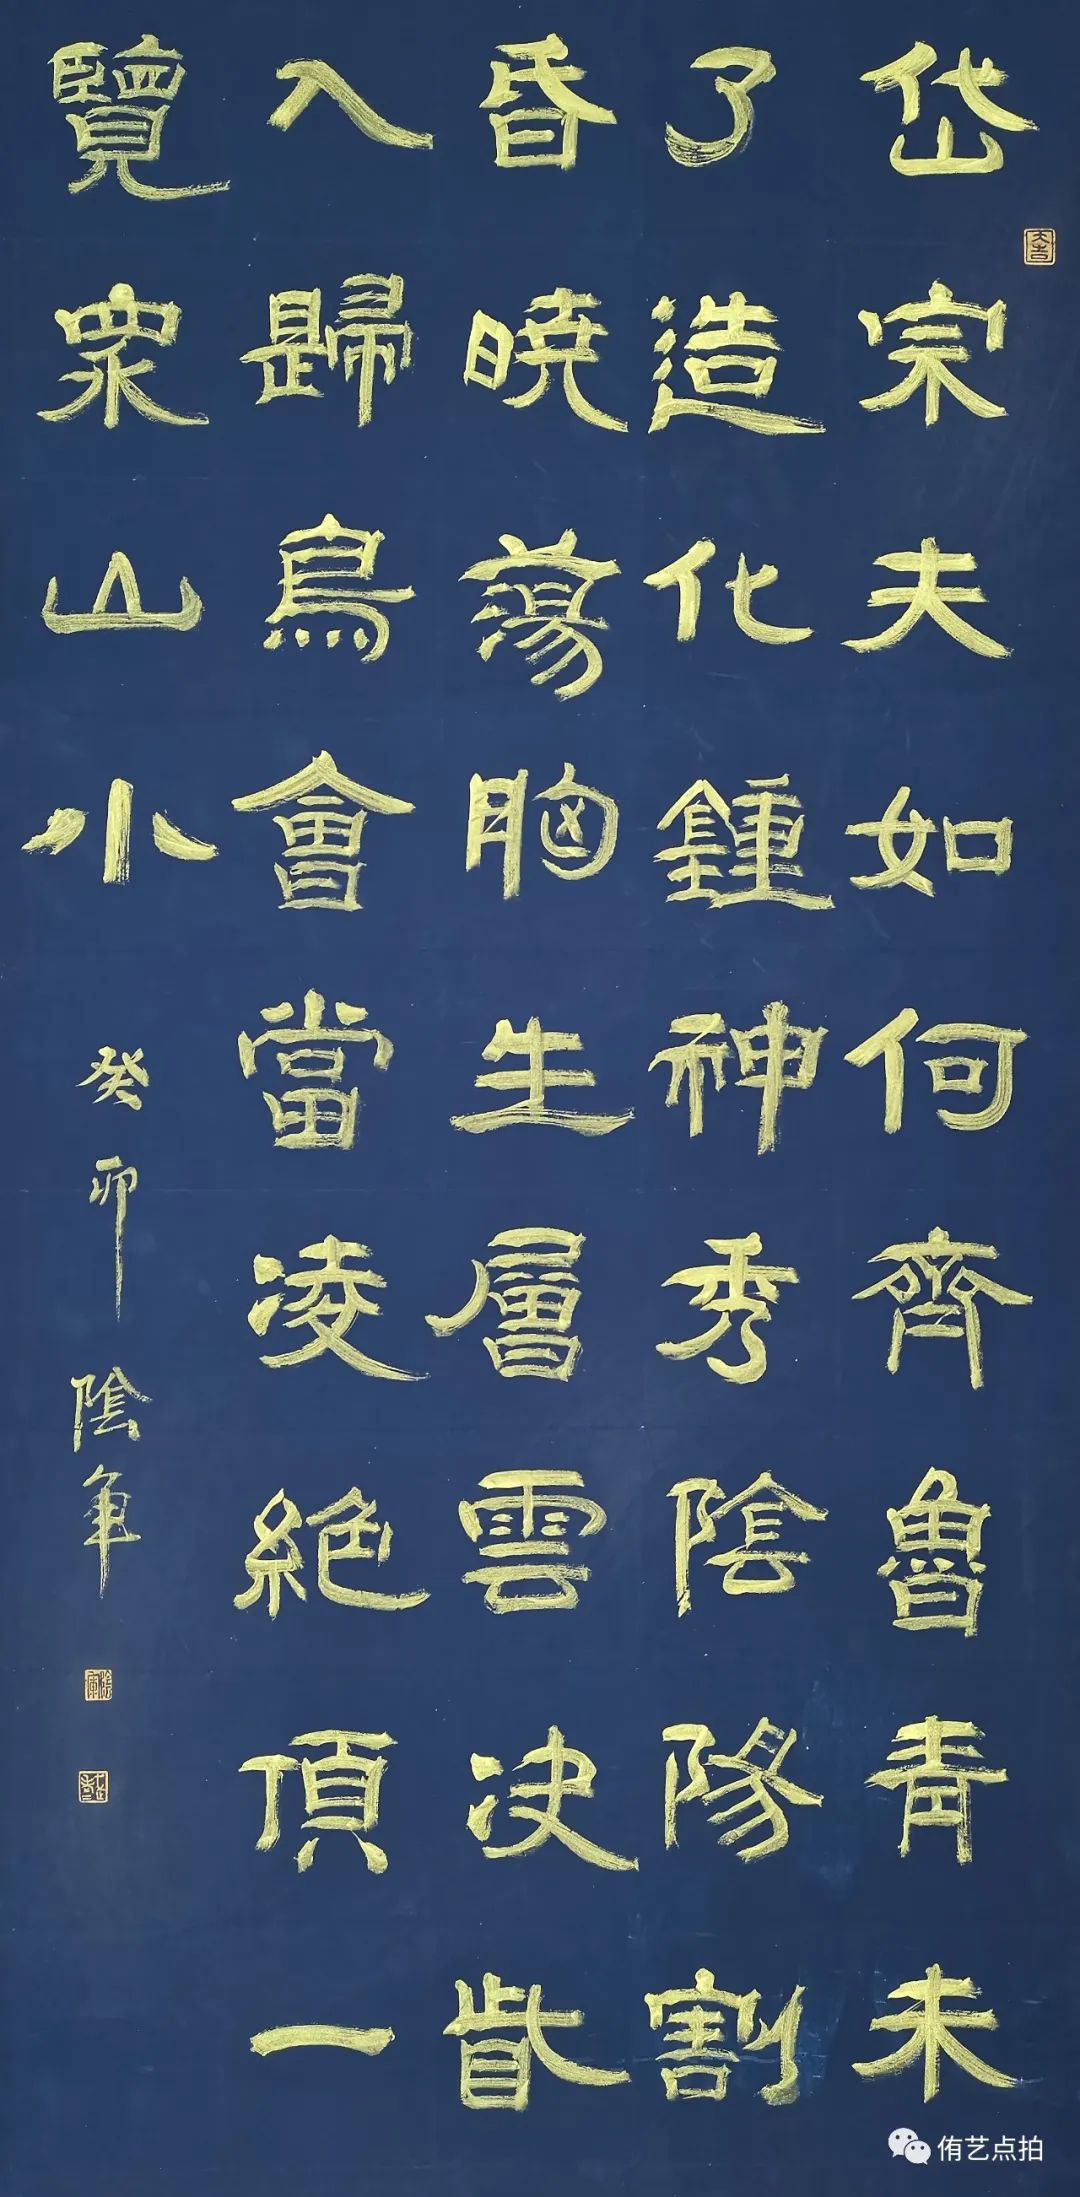 岱宗夫如何齊魯青未
了造化鍾神秀陰陽割
昏暁蕩胸生層雲决眥
入歸鳥會當凌絕頂一
覽眾山小
癸卯 陰軍
大吉
侑艺点拍